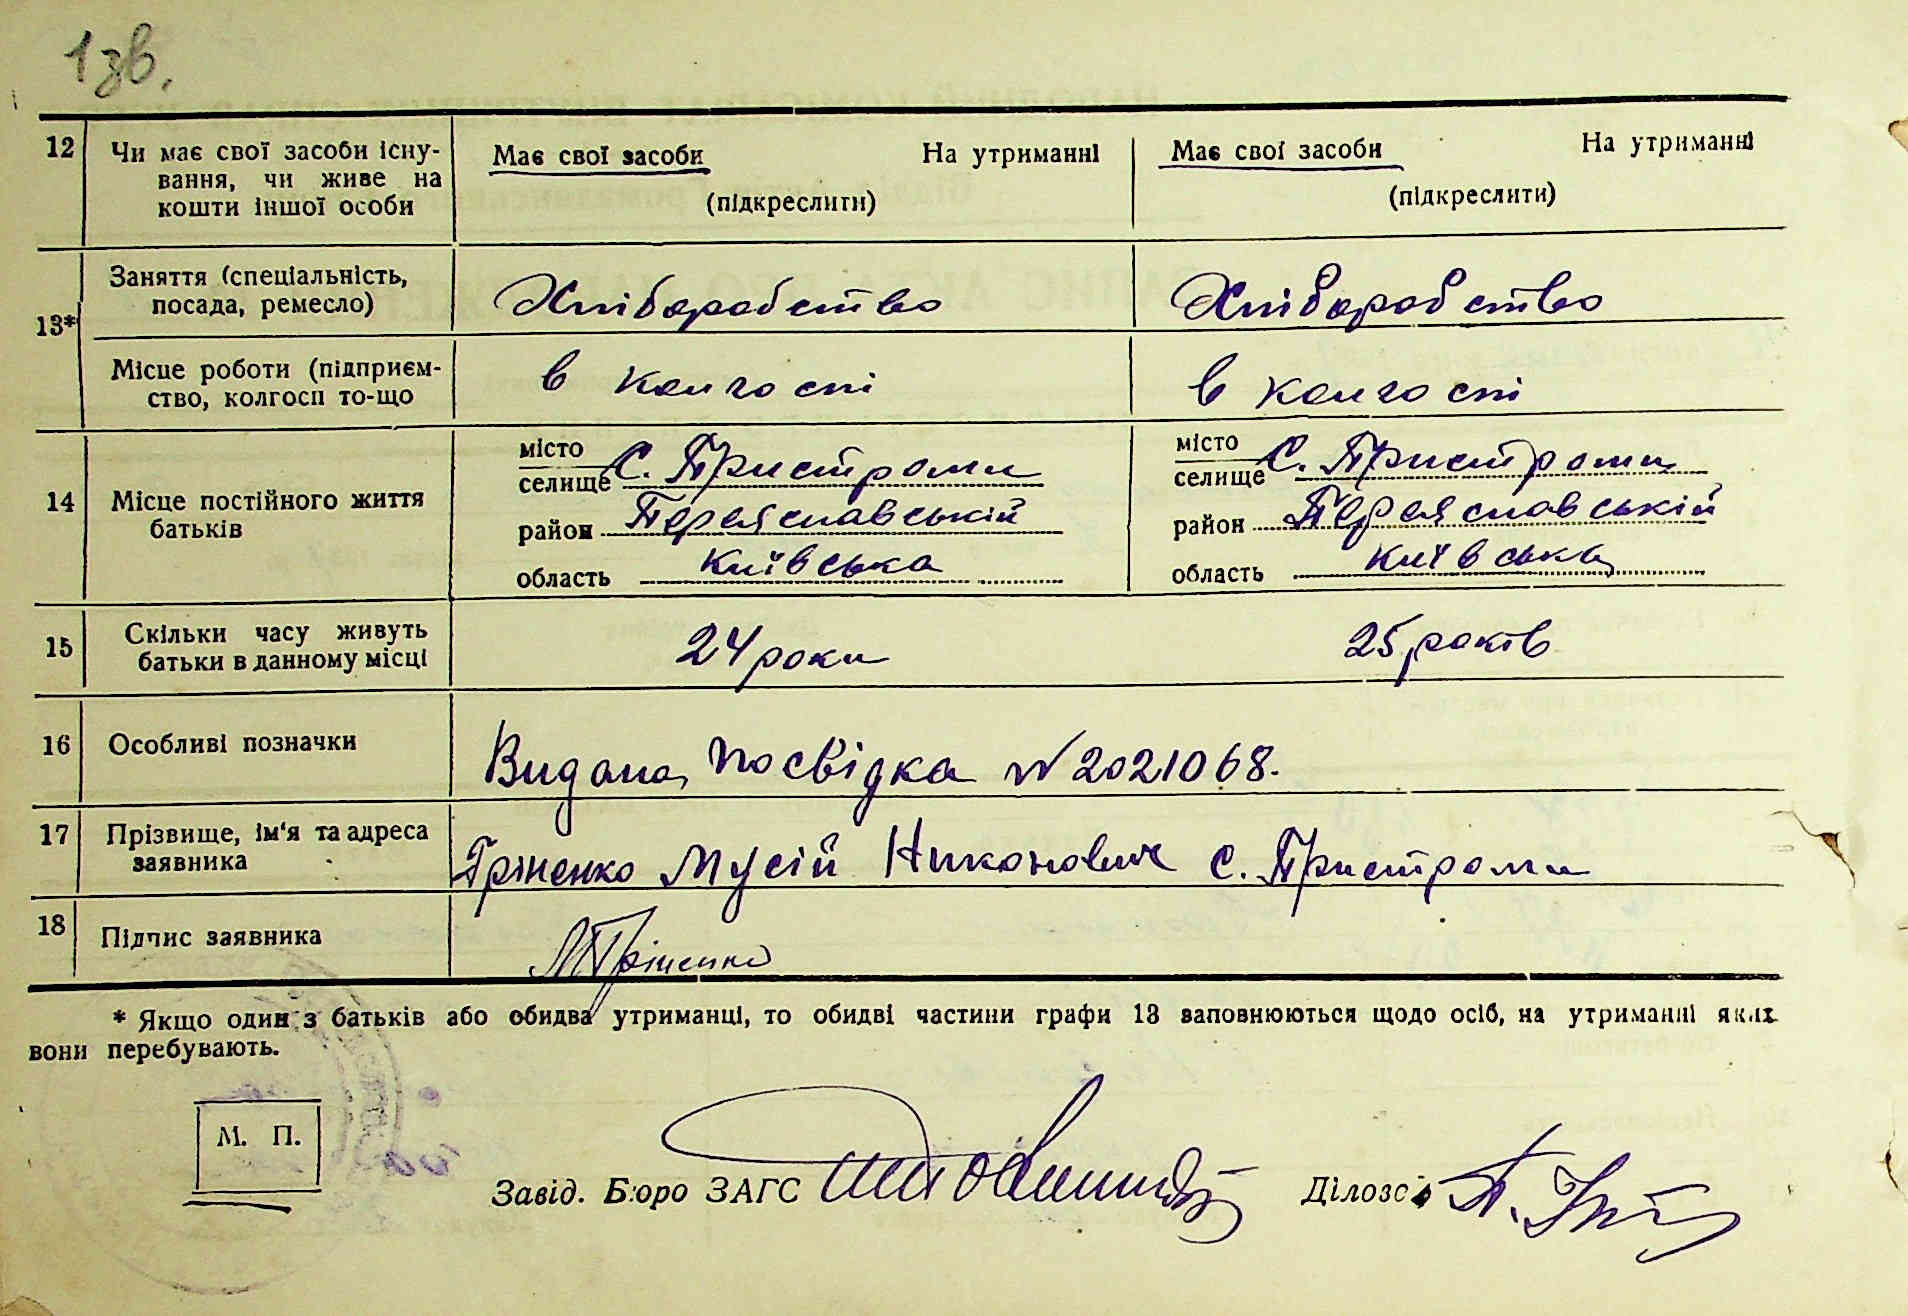 1зв.
12 Чи має свої засоби існу- Має свої засоби На утриманні Має свої засоби На утриманні
вання, чи живе на
кошти іншої особи (підкреслити) (підкреслити)
13* Заняття (спеціальність, Хліборобство Хліборобство
посада, ремесло)
Місце роботи (підприєм- в колгоспі в колгоспі
ство, колгосп то-що
14 Місце постійного життя місто С. Пристроми місто С. Пристроми
батьків селище селище
район Переяславській район Переяславській
область Київська область Київська
15 Скільки часу живуть 24 роки 25 років
батьки в данному місці
16 Особливі позначки Видана посвідка № 2021068.
17 Прізвище, ім'я та адреса Гріненко Мусій Никонович С. Пристроми
заявника
18 Підпис заявника МГріненко
* Якщо один з батьків або обидва утриманці, то обидві частини графи 13 заповнюються щодо осіб, на утриманні яких
вони перебувають.
М. П.
Завід. Бюро ЗАГС Діловод